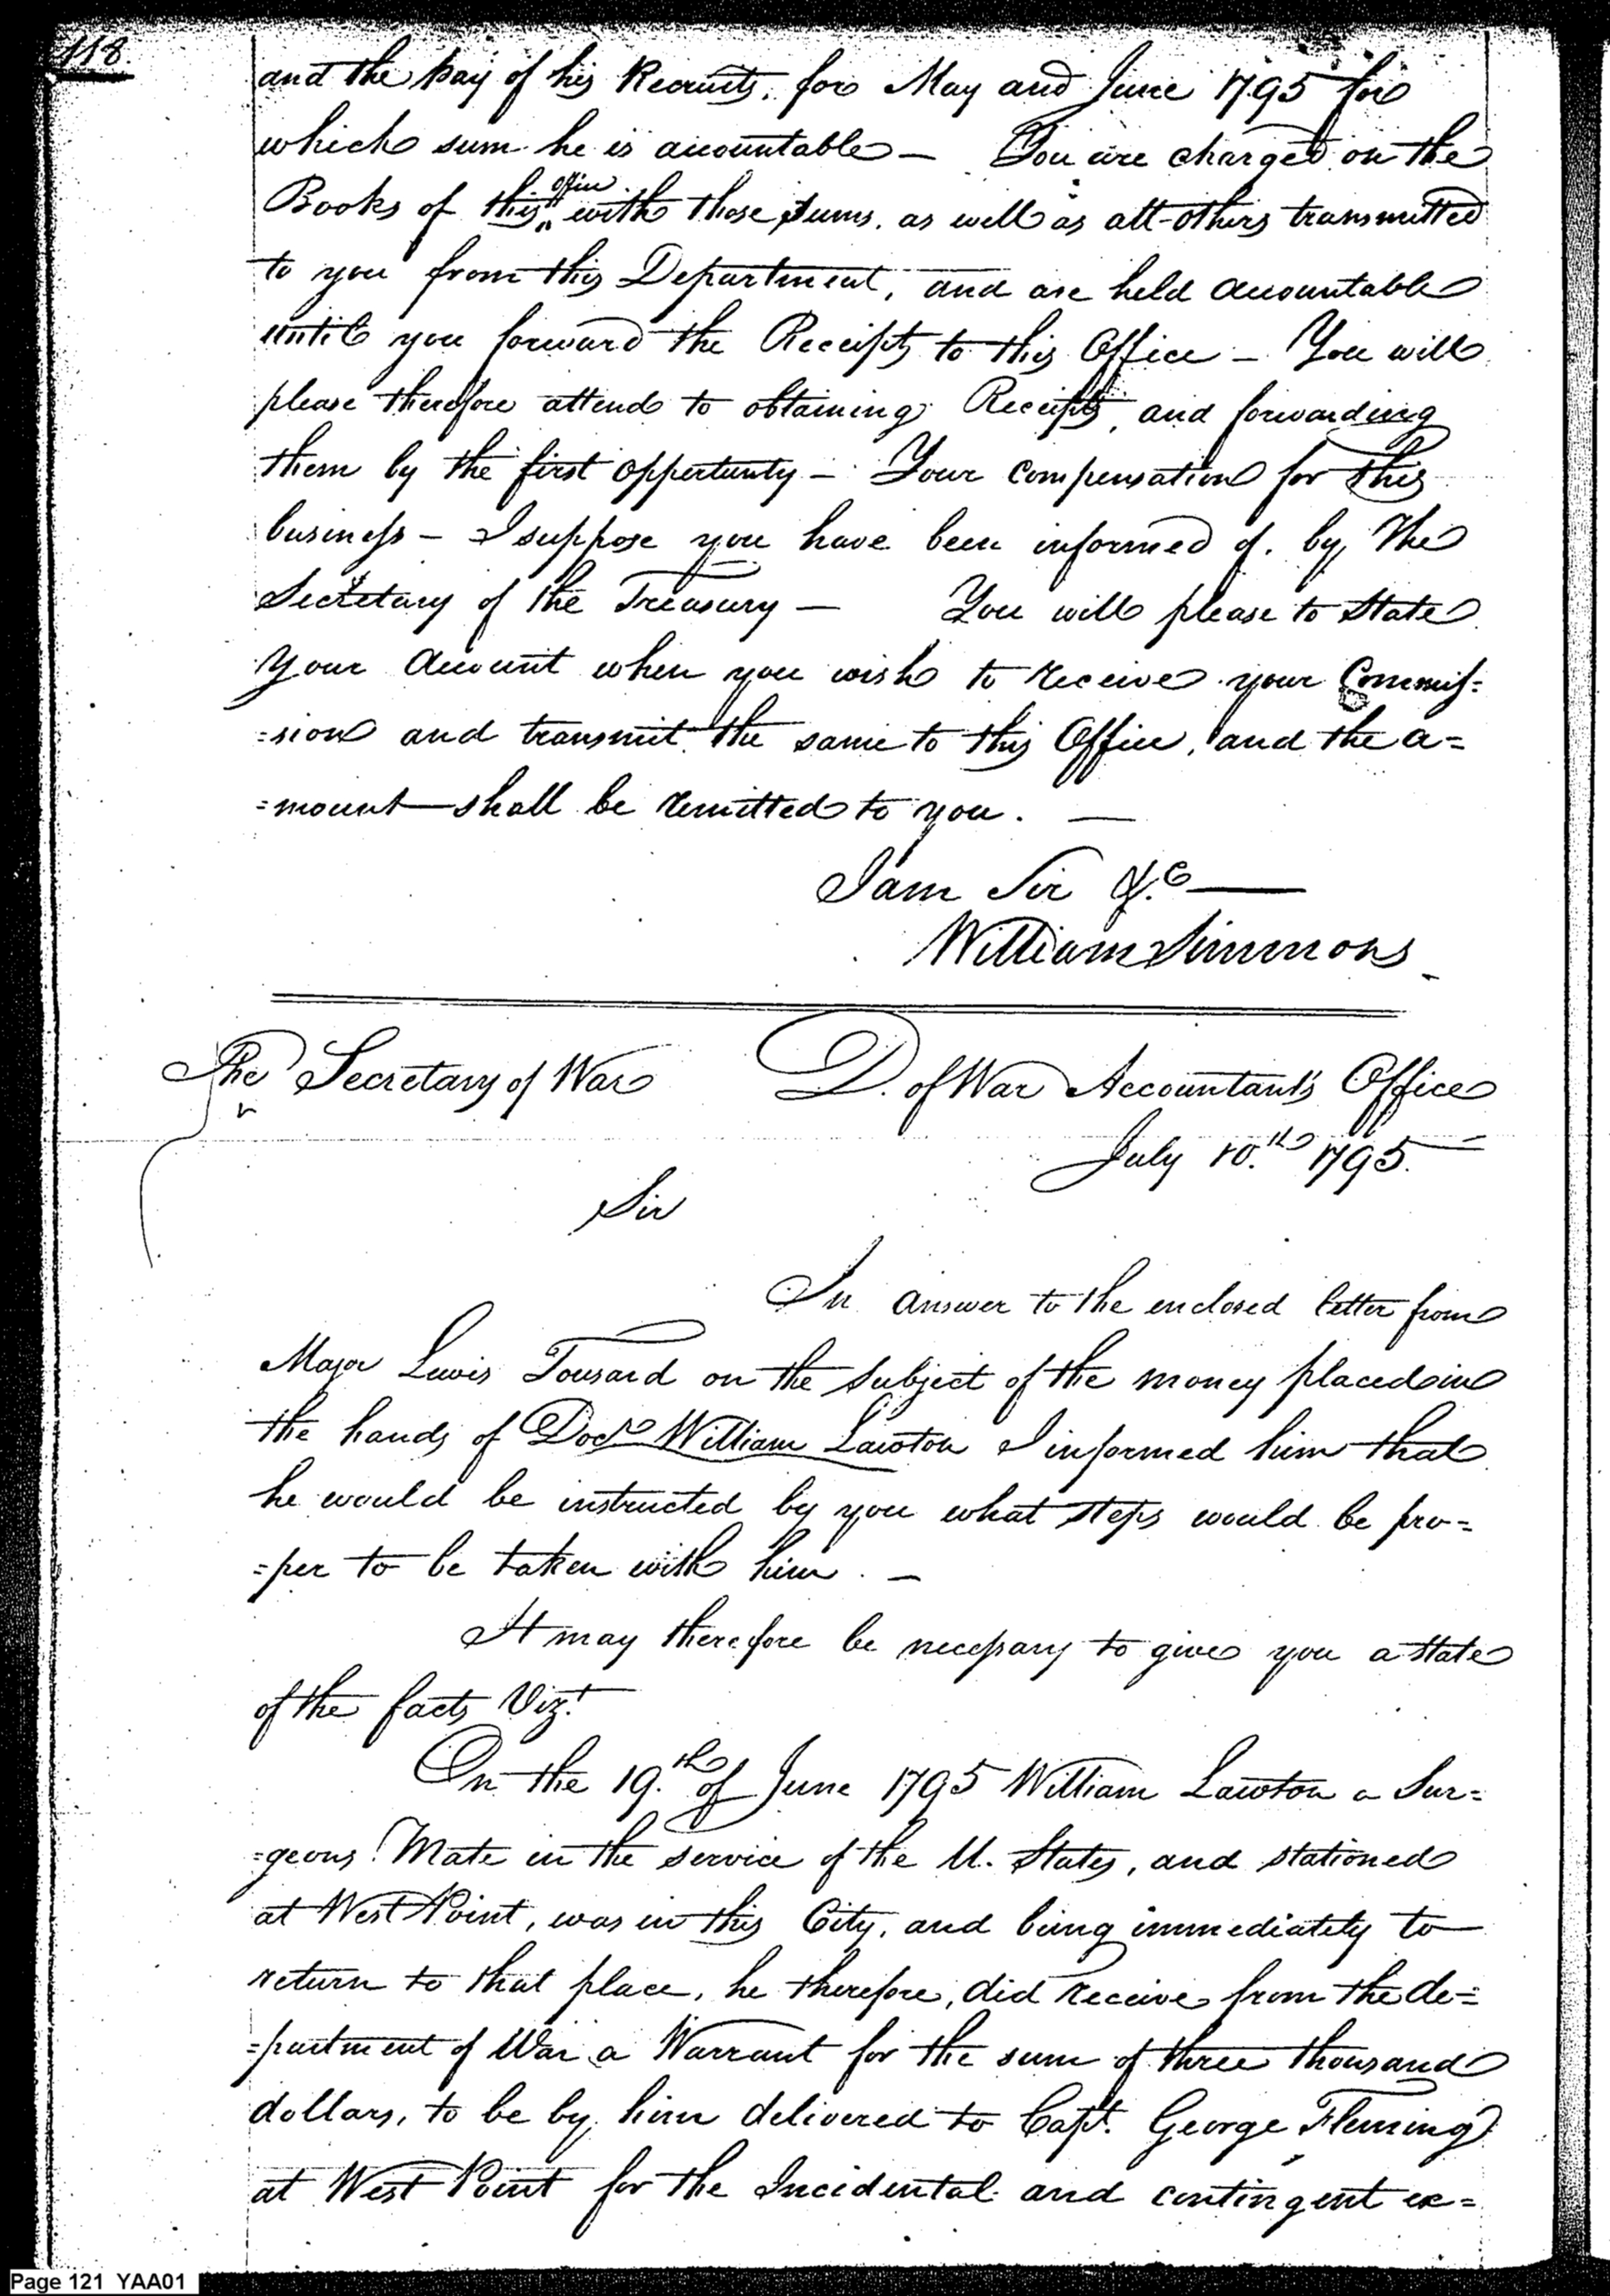 118.
and the pay of his Recruits, for May and June 1795 for
which sum he is accountable — You are charged on the
Books of this office with those sums, as well as all others transmitted
to you from this Department, and are held accountable
until you forward the Receipts to this Office — You will
please therefore attend to obtaining Receipts, and forwarding
them by the first oppertunty — Your compensation for this
business — I suppose you have been informed of, by the
Secretary of the Treasury — You will please to State
Your Account when you wish to receive your Commis=
=sion and transmit the same to this Office, and the a=
=mount shall be remitted to you. —
I am Sir &c. —
William Simmons
The Secretary of War D. of War Accountant's Office
July 10.th 1795.
Sir
In answer to the enclosed letter from
Major Lewis Tousard on the subject of the money placed in
the hands of Docr William Lawton I informed him that
he would be instructed by you what steps would be pro=
=per to be taken with him. —
It may therefore be necessary to give you a state
of the facts Vizt.
On the 19.th of June 1795 William Lawton a Sur=
=geons Mate in the service of the U. States, and stationed
at West Point, was in this City, and being immediately to
return to that place, he therefore, did receive from the de=
=partment of War a Warrant for the sum of three thousand
dollars, to be by him delivered to Capt. George Fleming
at West Point for the Incidental and contingent ex=
Page 121 YAA01